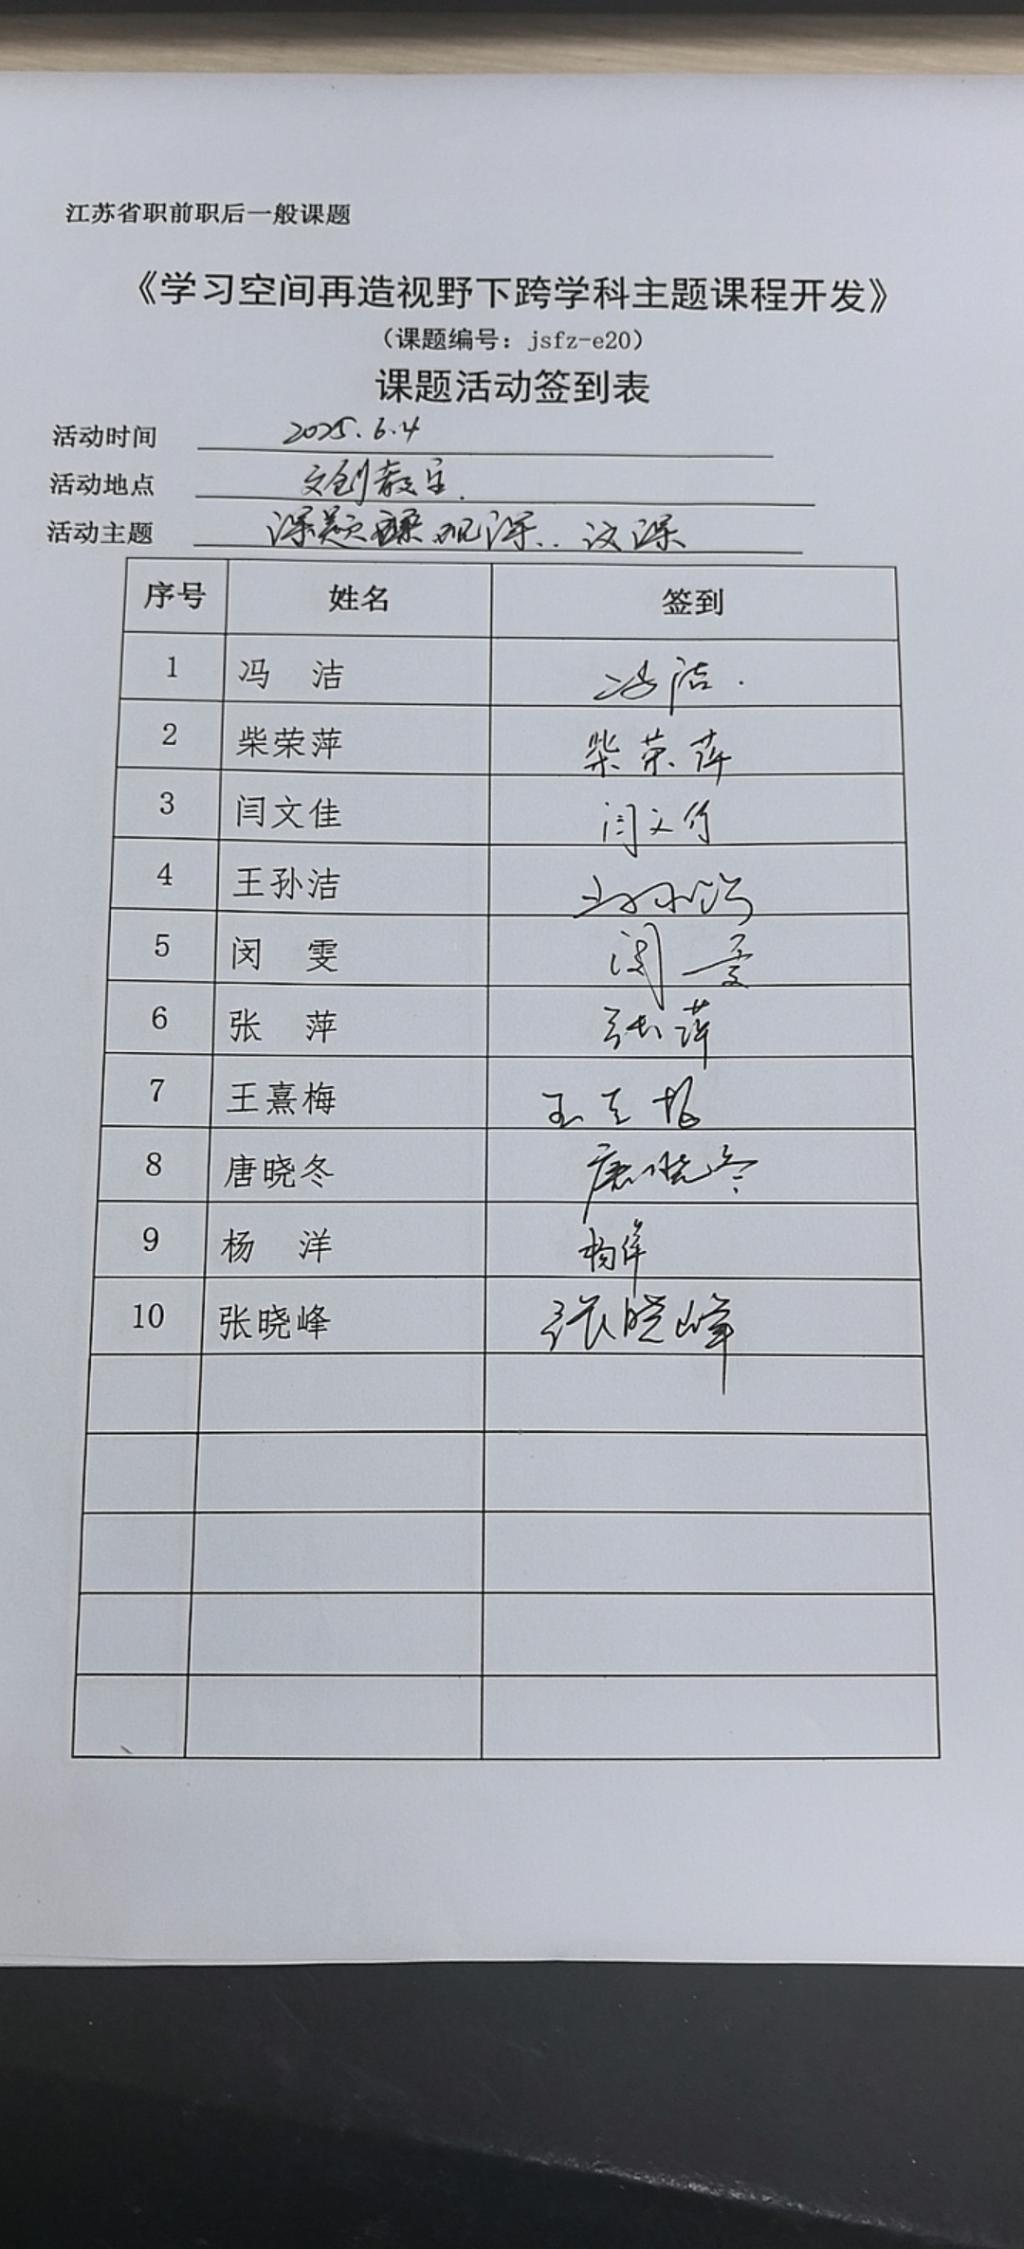 江苏省职前职后一般课题
《学习空间再造视野下跨学科主题课程开发》
（课题编号：jsfz-e20）
课题活动签到表
活动时间 2025.6.4
活动地点 文创教室.
活动主题 课题 观课.. 议课
序号 姓名 签到
1 冯 洁 冯洁.
2 柴荣萍 柴荣萍
3 闫文佳 闫文佳
4 王孙洁 王孙洁
5 闵 雯 闵雯
6 张 萍 张萍
7 王熹梅 王 梅
8 唐晓冬 唐晓冬
9 杨 洋 杨洋
10 张晓峰 张晓峰